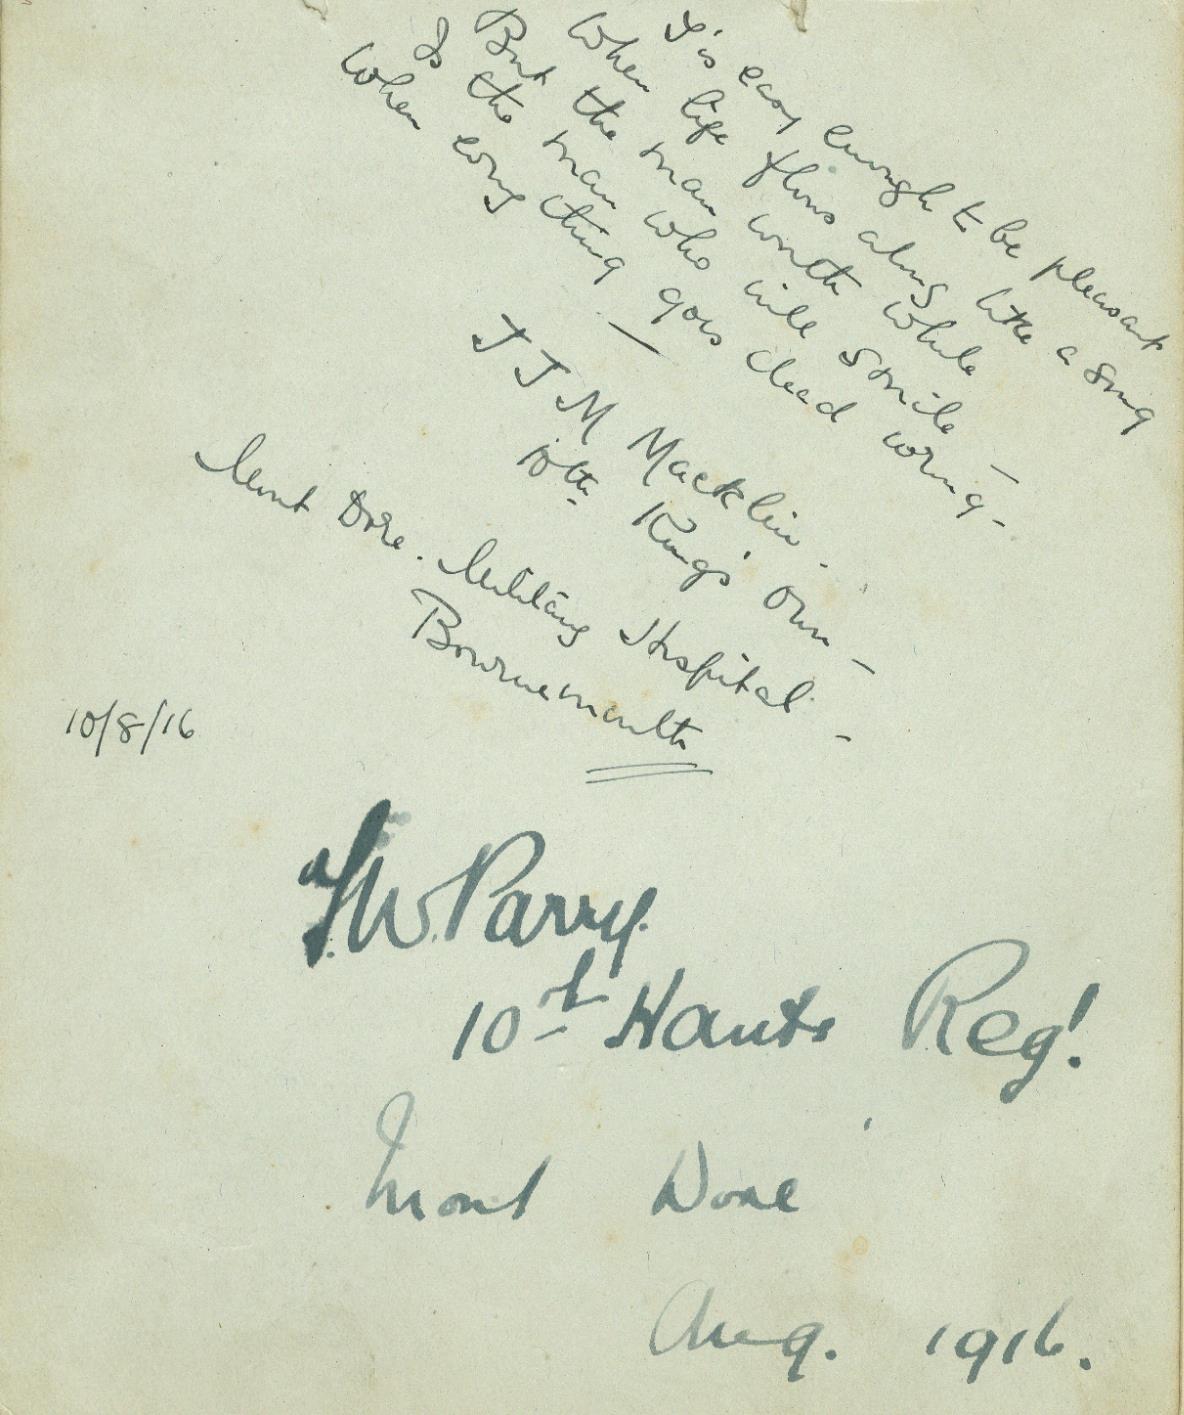 I's easy enough to be pleasant
When life flows along like a song
But the man worth while
Is the man who will smile
When every thing goes dead wrong -
J J M Macklin.
10th King's Own -
Mont Dore. Military Hospital -
Bournemouth
10/8/16
W. Parry.
10th Hants Regt.
Mont Dore
Aug. 1916.